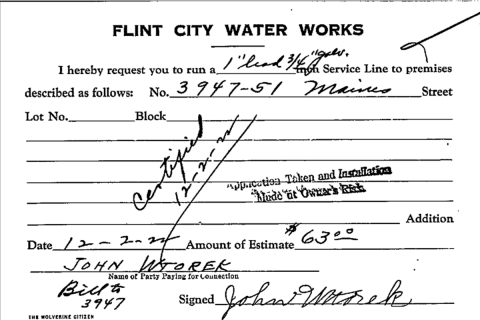 FLINT CITY WATER WORKS
I hereby request you to run a 1" lead 3/4" galv. inch Service Line to premises
described as follows: No. 3947-51 Maines Street
Lot No. Block
Certified
12-2-24
Application Taken and Installation
Made at Owner's Risk
Addition
Date 12-2-24 Amount of Estimate $63.00
JOHN WTOREK
Name of Party Paying for Connection
Bill to
3947
Signed John Wtorek
THE WOLVERINE CITIZEN